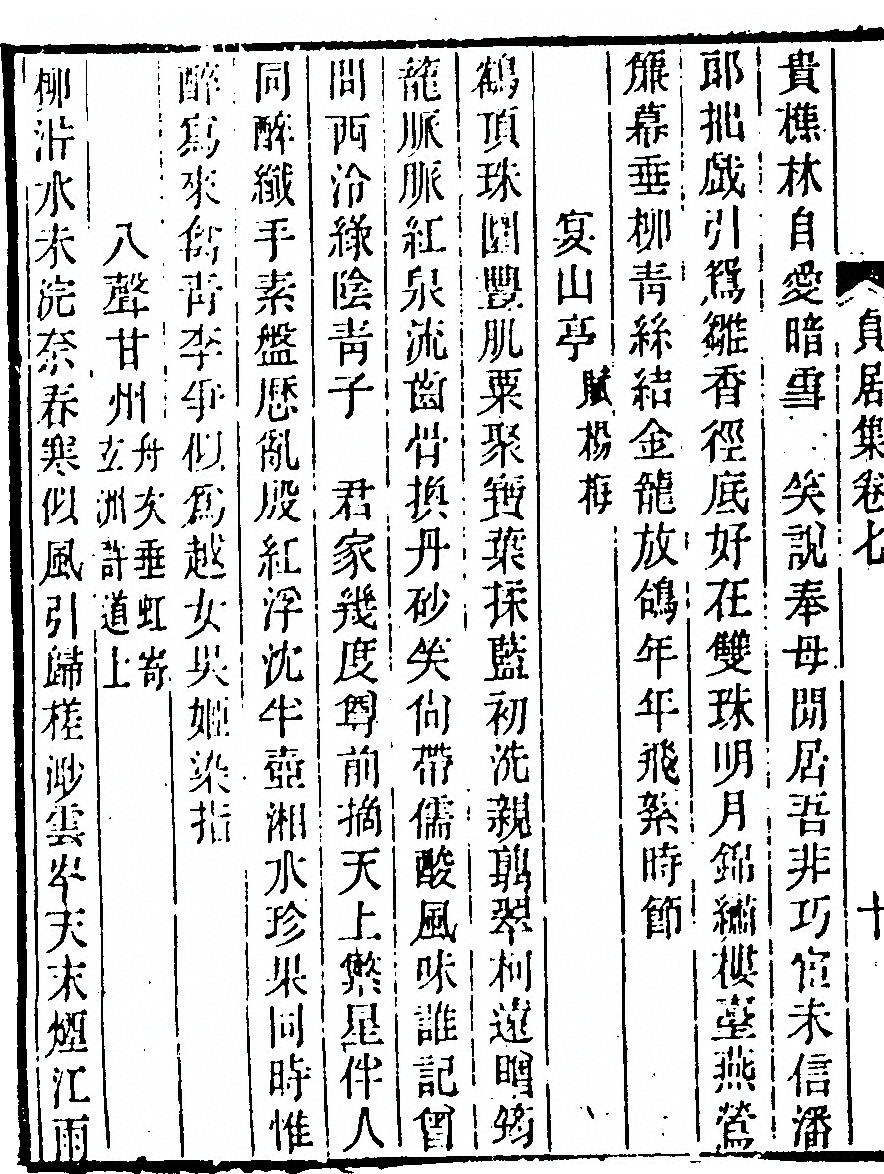 貞居集卷七 十
貴樵林自愛暗雪 笑說奉母閒居吾非巧宦未信潘
耶拙戲引鴛雛香徑底好在雙珠明月錦繡樓臺燕鶯
簾幕垂柳青絲結金龍放鴿年年飛絮時節
宴山亭 賦楊梅
鶴頂珠圓豐肌粟聚寶葉揉藍初洗親翦翠柯遠贈筠
籠脈脈紅泉流齒骨換丹砂笑尚帶儒酸風味誰記曾
問西泠綠陰青子 君家幾度尊前摘天上繁星伴人
同醉纖手素盤歷亂殷紅浮沈半壺湘水珍果同時惟
醉寫來禽青李爭似爲越女吳姬染指
八聲甘州 舟次垂虹寄
玄洲許道士
柳水未浣奈春寒似風引歸槎渺雲岑天末煙江雨